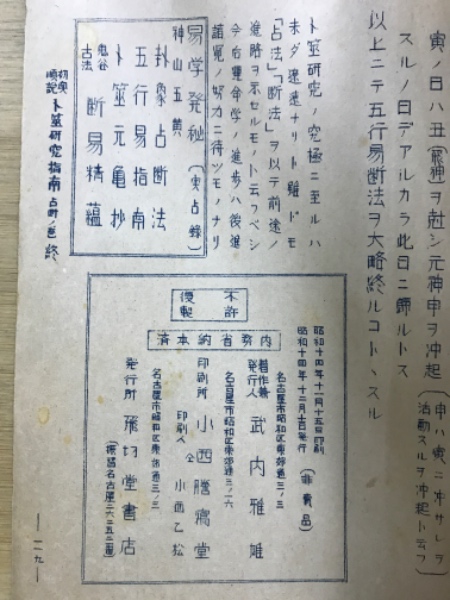 寅ノ日ハ丑(厭神)ヲ尅シ元神申ヲ冲起(申ハ寅ニ冲サレテ活動スルヲ冲起ト云フ)
スルノ日デアルカラ此日ニ歸ルトス
以上ニテ五行易断法ヲ大略終ルコトヽスル
卜筮研究ノ究極ニ至ルハ
未ダ遼遠ナリト雖ドモ
「占法」「断法」ヲ以テ前途ノ
進路ヲ示セルモノト云フベシ
今后運命学ノ進歩ハ後進
諸賢ノ努力ニ待ツモノナリ
易学発秘(実占録)
神山五黄
卦象占断法
五行易指南
卜筮元亀抄
鬼谷古法 断易精蘊
初奥順説 卜筮研究指南 占断ノ巻 終
不許複製
内務省納本済
昭和十四年十一月十五日印刷
昭和十四年十二月十日発行(非賣品)
名古屋市昭和区東郊通三ノ三
著作兼発行人 武内雅雄
名古屋市昭和区東郊通三ノ六
印刷所 小西謄寫堂
印刷人 仝 小西乙松
名古屋市昭和区東郊通三ノ三
発行所 飛切堂書店
(振替名古屋二六二五二番)
―一二九―